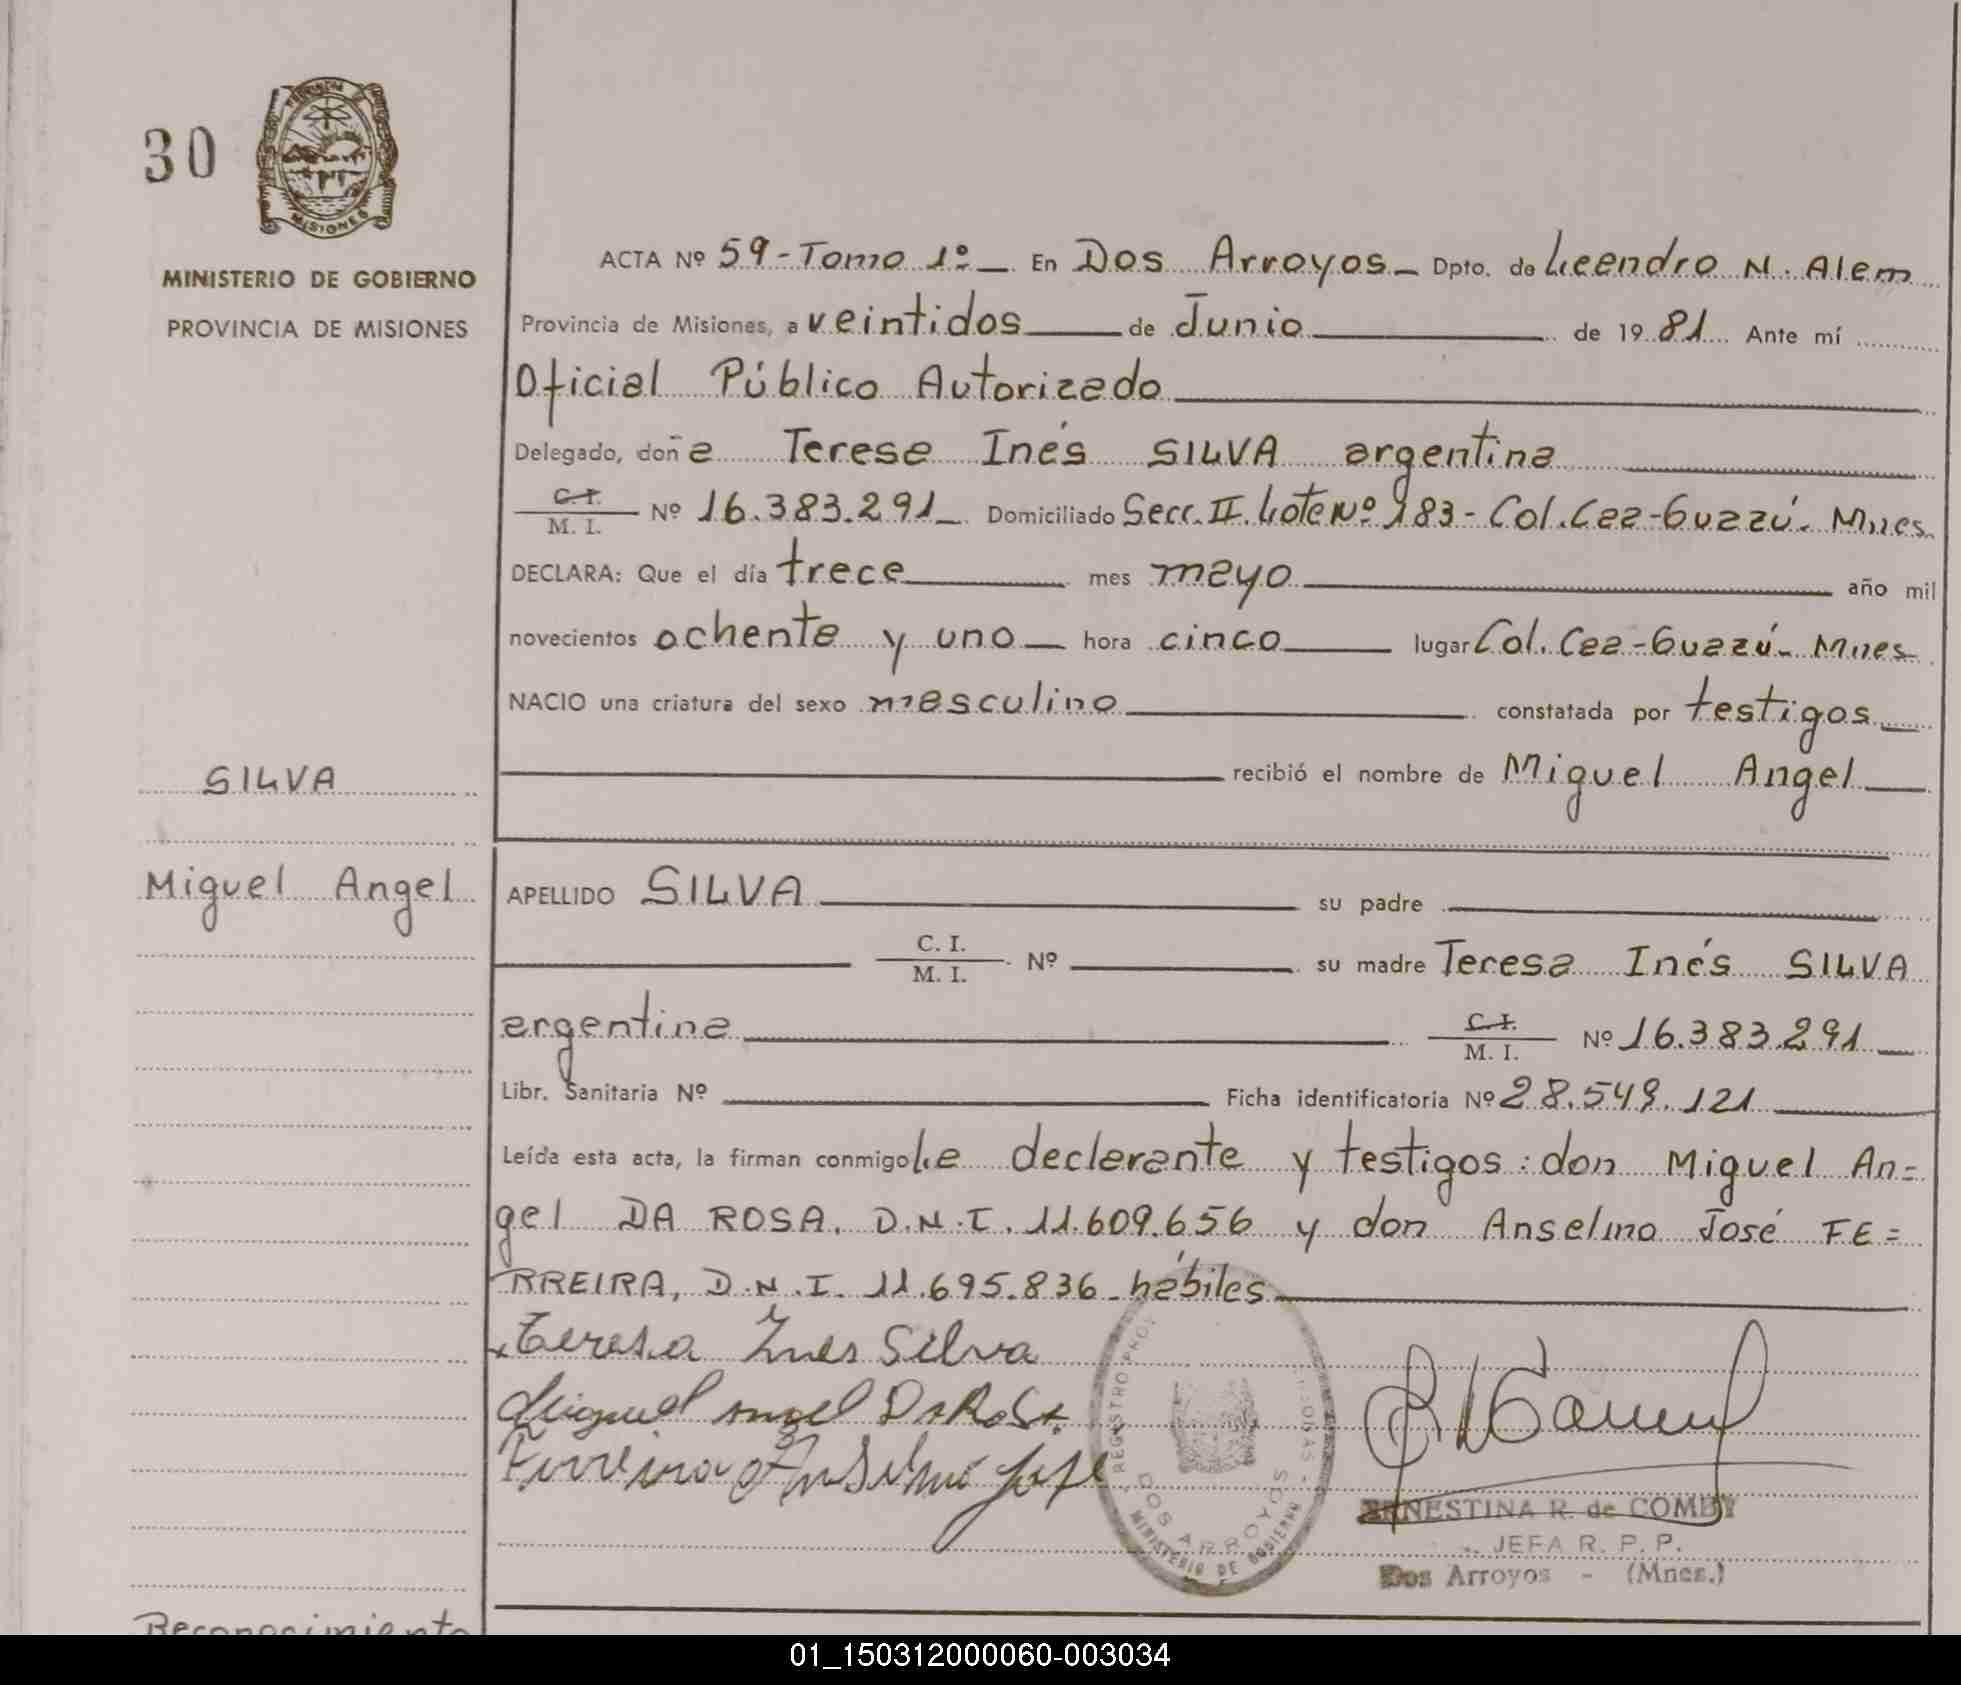 30
PROVINCIA DE
MISIONES
MINISTERIO DE GOBIERNO
PROVINCIA DE MISIONES
ACTA Nº 59-Tomo 1º_ En Dos Arroyos_ Dpto. de Leandro N. Alem
Provincia de Misiones, a veintidos de Junio de 1981 Ante mí
Oficial Público Autorizado
Delegado, doña Teresa Inés SILVA argentina
C.I.
M. I. Nº 16.383.291_ Domiciliado Secc. II. Lote Nº 183- Col. Caa-Guazú- Mnes.
DECLARA: Que el día trece mes mayo año mil
novecientos ochenta y uno hora cinco lugar Col. Caa-Guazú- Mnes
NACIO una criatura del sexo masculino constatada por testigos
recibió el nombre de Miguel Angel
SILVA
Miguel Angel
APELLIDO SILVA su padre
C. I.
M. I. Nº su madre Teresa Inés SILVA
argentina C.I.
M. I. Nº 16.383.291
Libr. Sanitaria Nº Ficha identificatoria Nº 28.549.121
Leída esta acta, la firman conmigo La declarante y testigos: don Miguel An=
gel DA ROSA, D.N.I. 11.609.656 y don Anselmo José FE=
RREIRA, D.N.I. 11.695.836 hábiles
Teresa Ines Silva
Miguel Angel DaRosa
Ferreira Anselmo José
REGISTRO PROV
DOS ARROYOS
MINISTERIO DE GOBIERNO
ERNESTINA R. de COMBY
JEFA R. P. P.
Dos Arroyos - (Mnes.)
Reconocimiento
01_150312000060-003034